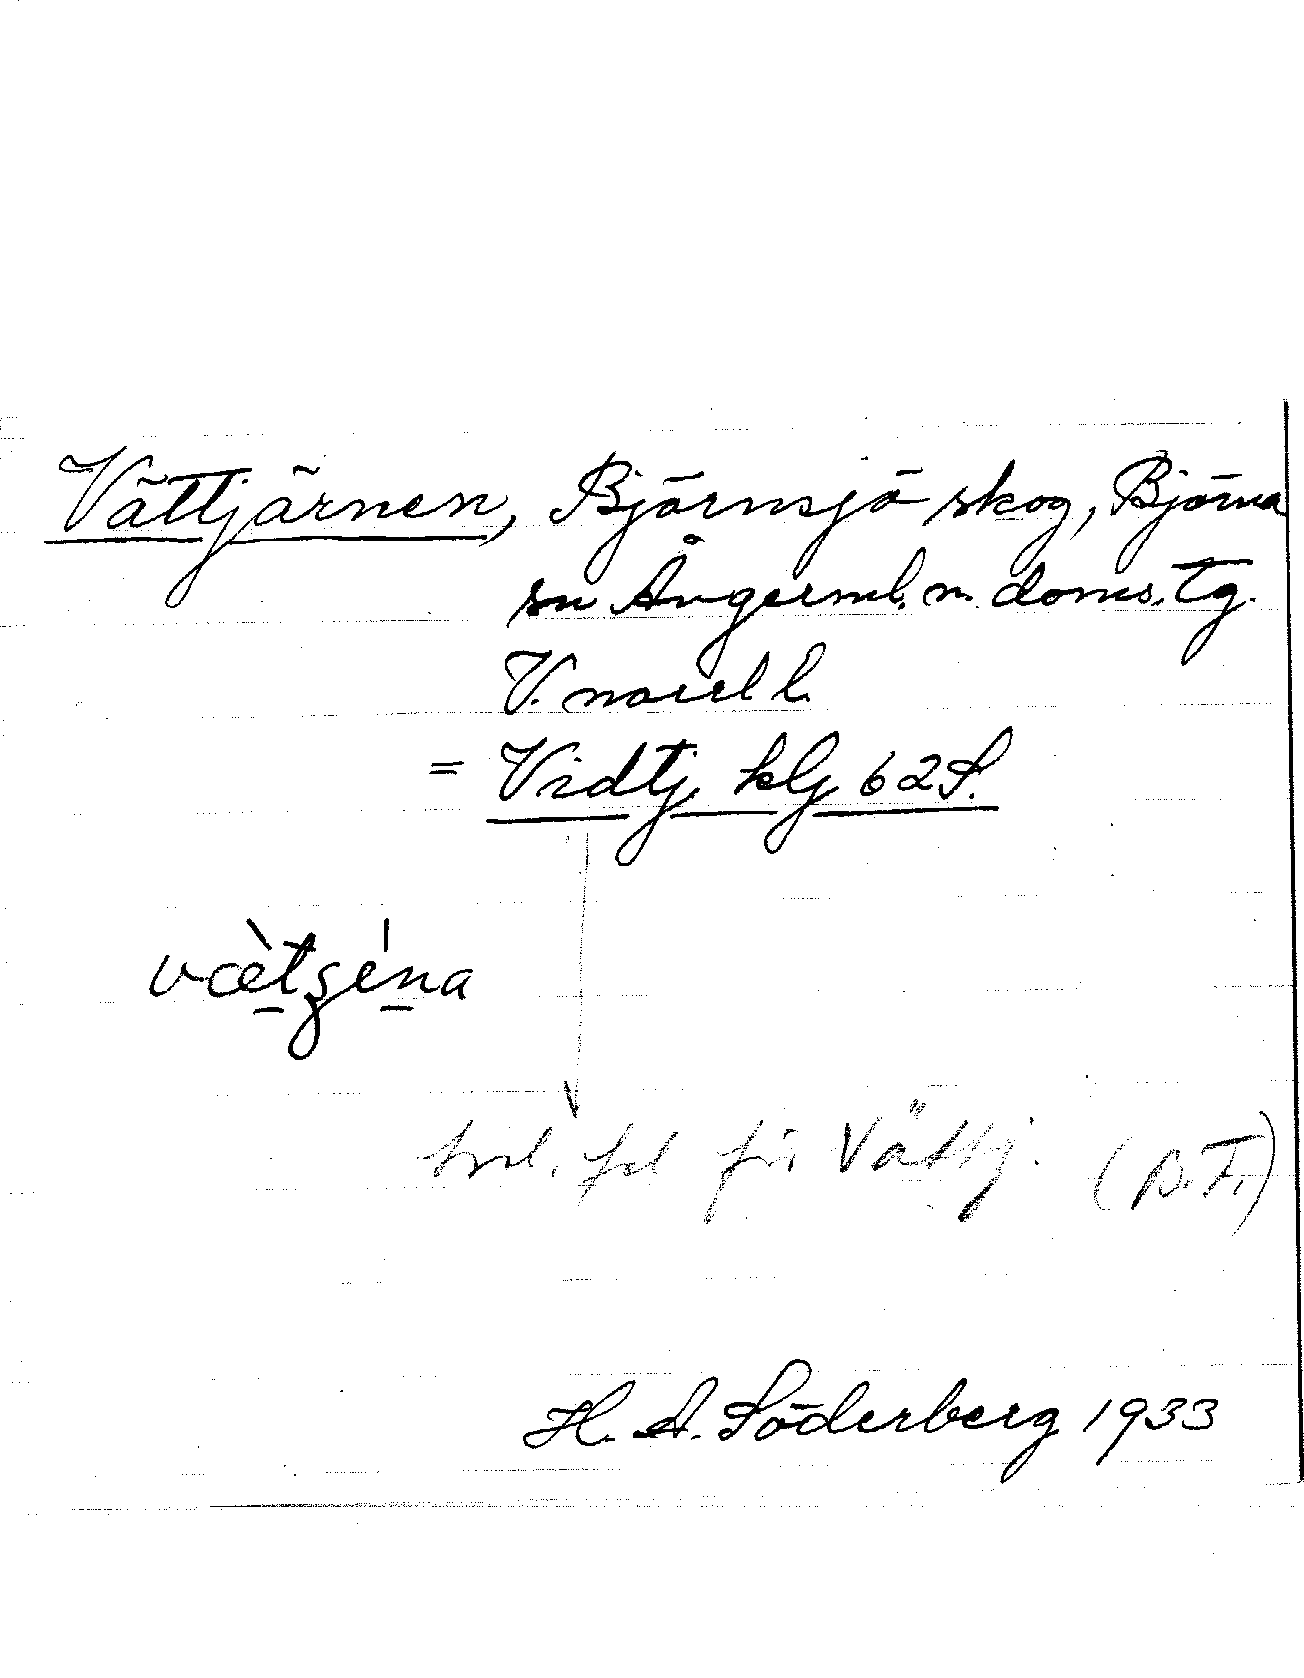 Vättjärnen, Björnsjö skog, Björna
sn Ångerml. n. doms. tg.
V. norrl l.
= Vidtj klj 62 S.
vætʒéna
trol. fel för Vättj. (B.F.)
H. A. Söderberg 1933